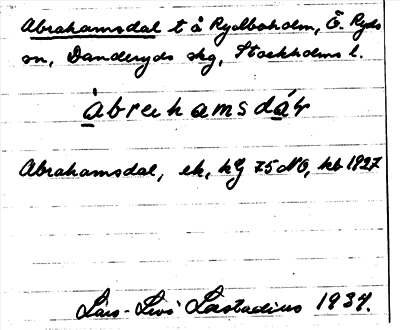 Abrahamsdal t å Rydboholm, Ö. Ryds
sn, Danderyds skg, Stockholms l.
àbrahamsdáɽ
Abrahamsdal, ek, hg 75 NO, kb 1927
Lars-Levi Læstadius 1934.